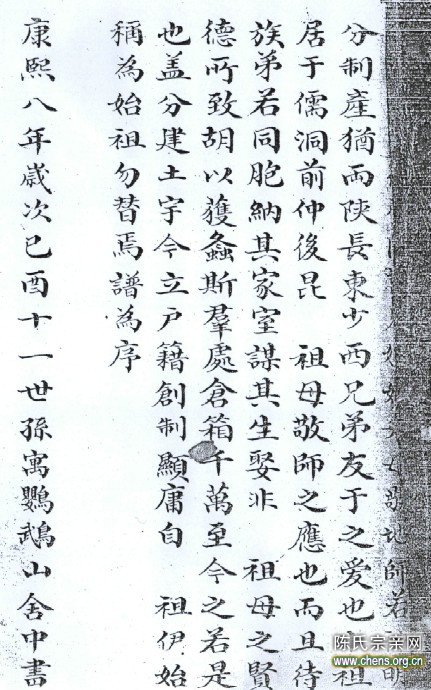 師若
分制產猶兩陝長東少西兄弟友于之愛也 祖
居于儒洞前仲後昆 祖母敬師之應也而且待
族弟若同胞納其家室謀其生娶非 祖母之賢
德所致胡以獲螽斯羣處倉箱千萬至今之若是
也盖分建土宇今立戶籍創制顯庸自 祖伊始
稱為始祖勿替焉譜為序
康熙八年歲次己酉十一世孫寓鸚鵡山舍中書
陈氏宗亲网
www.chens.org.cn